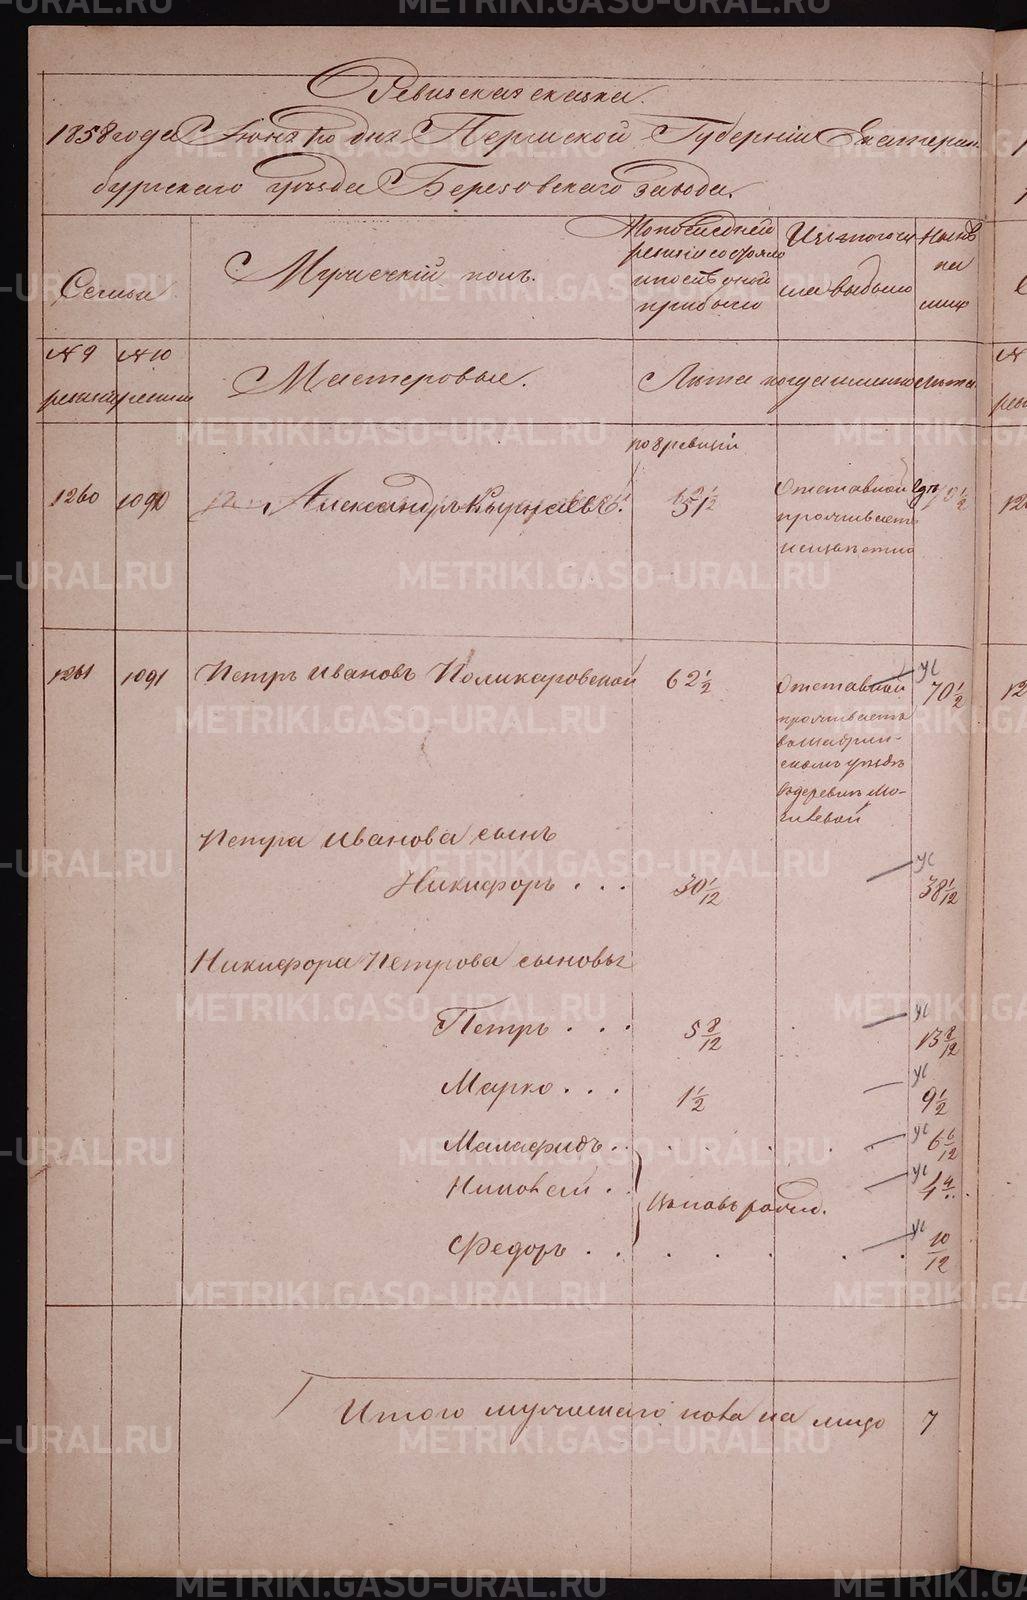 Ревизская сказка.
1858 года Іюня по дня Пермской Губерніи Екатерин
бургскаго уѣзда Березовскаго завода.
Семьи
Мужескій полъ.
По последней
ревизіи состояло
и послѣ оной
прибыло
Изъ того чи
сла выбыло
Нынѣ
на
лицо
№ 9
ревизіи
№ 10
ревизіи
Мастеровые.
Лѣта
когда именно
лѣта.
по 8 ревизіи
1260
1090
Александръ
51 1/2
Отставной
проживаетъ
1261
1091
Петръ Ивановъ Поликаровской
62 1/2
Отставной
проживаетъ
въ Шадрин-
скомъ уѣздѣ
въ деревнѣ Мо-
гилевой
УС
70 1/2
Петра Иванова сынъ
Никифоръ . . .
30 1/12
УС
38 1/12
Никифора Петрова сыновья
Петръ . . .
5 8/12
УС
13 8/12
Марко . . .
1 1/2
УС
9 1/2
Малафидъ . .
УС
6 6/12
.
Вновь рожд.
УС
4
Федоръ . .
УС
10/12
Итого мужескаго пола на лицо 7
METRIKI.GASO-URAL.RU